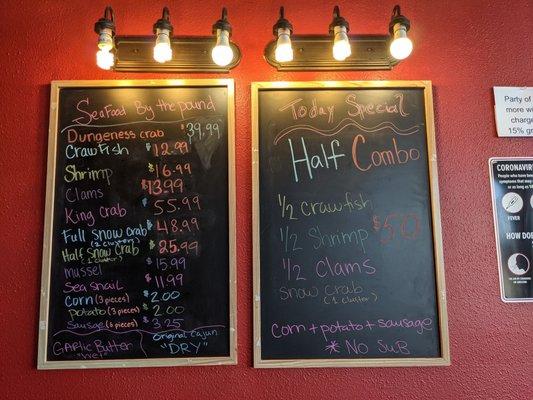 SeaFood By the pound
Dungeness crab $39.99
CrawFish $12.99
Shrimp $16.99
Clams $13.99
King Crab $55.99
Full Snow Crab $48.99
(2 clusters)
Half Snow Crab $25.99
(1 cluster)
Mussel $15.99
Sea snail $11.99
Corn (3 pieces) $2.00
Potato (3 pieces) $2.00
Sausage (6 pieces) $3.25
GARLIC Butter
"Wet"
Original Cajun
"DRY"
Today Special
Half Combo
1/2 Crawfish
1/2 Shrimp $50
1/2 Clams
Snow Crab
(1 cluster)
Corn + potato + sausage
* No SuB
Party of
more wi
charge
15% gr
CORONAVIR
FEVER
HOW DOE